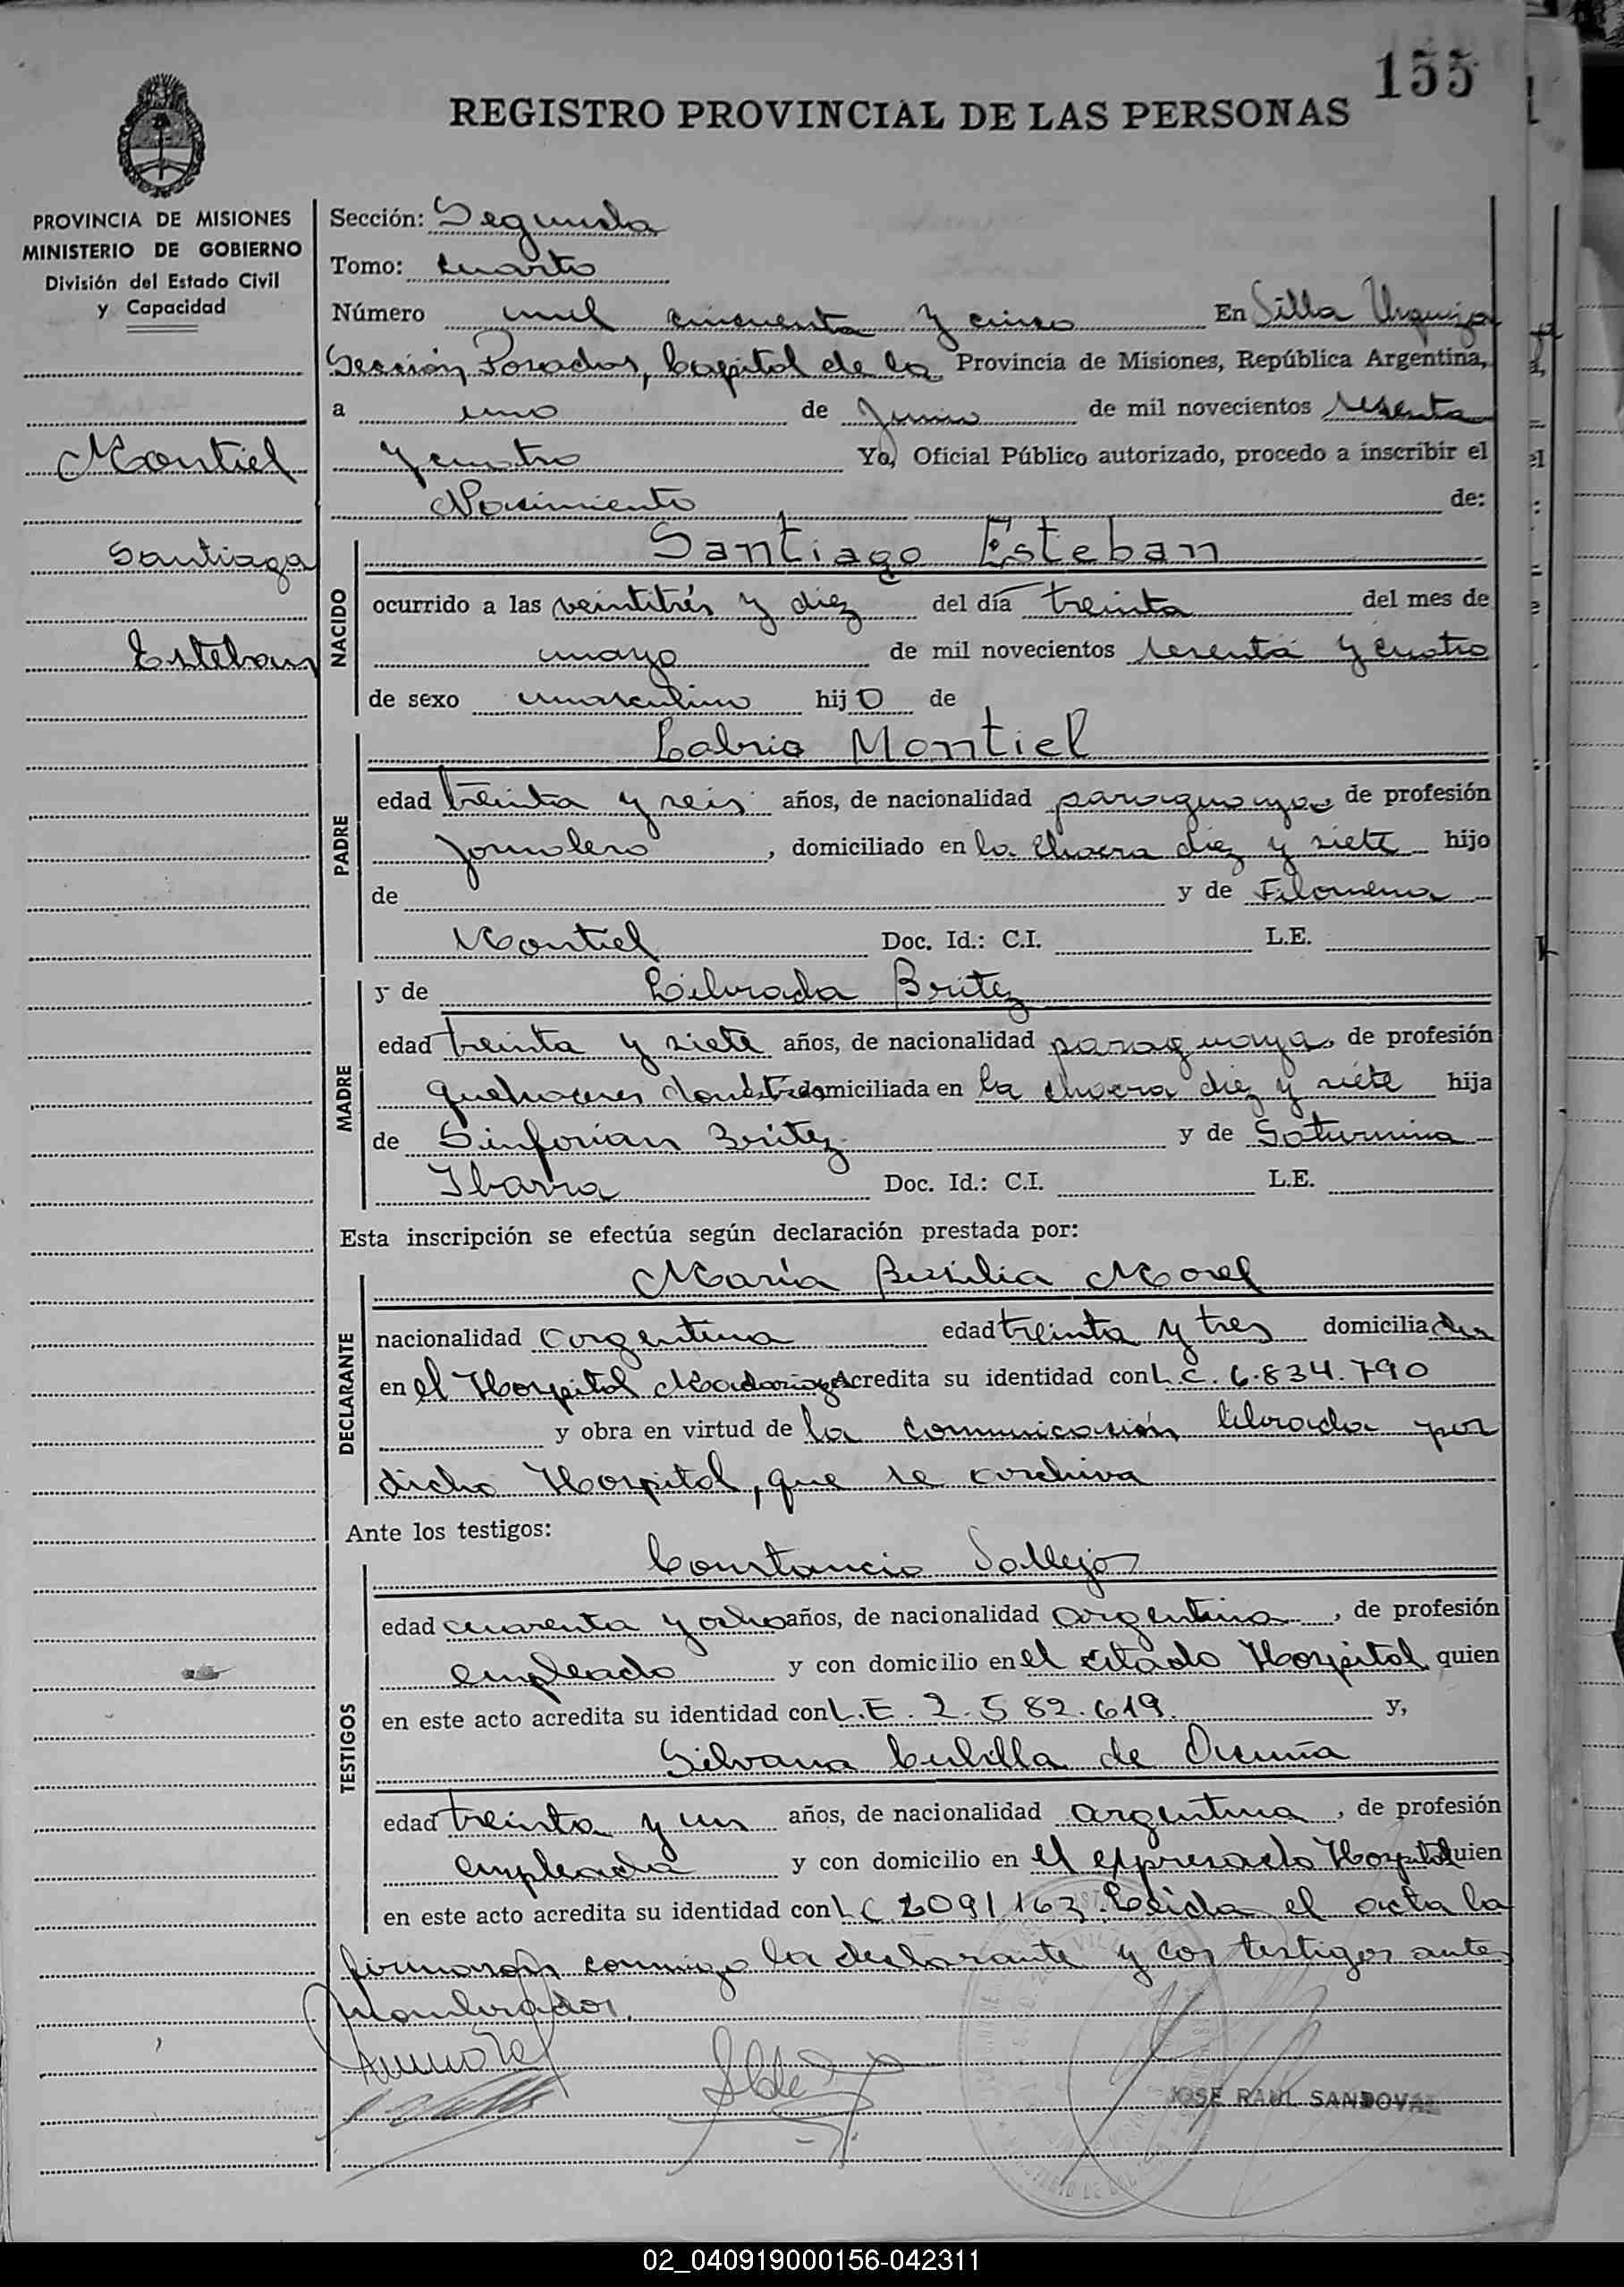 155
REGISTRO PROVINCIAL DE LAS PERSONAS
PROVINCIA DE MISIONES
MINISTERIO DE GOBIERNO
División del Estado Civil
y Capacidad
Montiel
Santiago
Esteban
Sección: Segunda
Tomo: cuarto
Número mil cincuenta y cinco En Villa Urquiza
Sección Posadas, Capital de la Provincia de Misiones, República Argentina,
a uno de Junio de mil novecientos sesenta
y cuatro Yo, Oficial Público autorizado, procedo a inscribir el
Nacimiento de:
NACIDO
Santiago Esteban
ocurrido a las veintitrés y diez del día treinta del mes de
mayo de mil novecientos sesenta y cuatro
de sexo masculino hijo de
PADRE
Montiel
edad treinta y seis años, de nacionalidad paraguaya, de profesión
jornalero, domiciliado en la chacra diez y siete hijo
de y de Filomena
Montiel Doc. Id.: C.I. L.E.
MADRE
y de Librada Britez
edad treinta y siete años, de nacionalidad paraguaya, de profesión
quehaceres domést. domiciliada en la chacra diez y siete hija
de Sinforian Britez y de Saturnina
Ibarra Doc. Id.: C.I. L.E.
Esta inscripción se efectúa según declaración prestada por:
DECLARANTE
María Morel
nacionalidad argentina edad treinta y tres domiciliada
en el Hospital Madariaga Acredita su identidad con L.C. 6.834.790
y obra en virtud de la comunicación librada por
dicho Hospital, que se archiva
Ante los testigos:
TESTIGOS
Constancio Vallejos
edad cuarenta y ocho años, de nacionalidad argentina, de profesión
empleado y con domicilio en el citado Hospital quien
en este acto acredita su identidad con L.E. 2.582.619. y,
Silvana de
edad treinta y un años, de nacionalidad argentina, de profesión
empleada y con domicilio en el expresado Hospital quien
en este acto acredita su identidad con L C 2091163. Leida el acta la
firmaron conmigo la declarante y los testigos antes
nombrados.
JOSE RAUL SANDOVAL
02_040919000156-042311